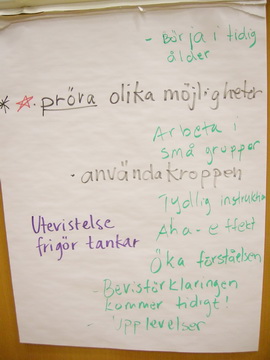 - Börja i tidig
ålder
* ☆ · pröva olika möjligheter
Arbeta i
små grupper
· använda kroppen
Tydlig instruktion
Utevistelse
frigör tankar
Aha - effekt
Öka förståelsen
- Bevisförklaringen
kommer tidigt!
- Upplevelser